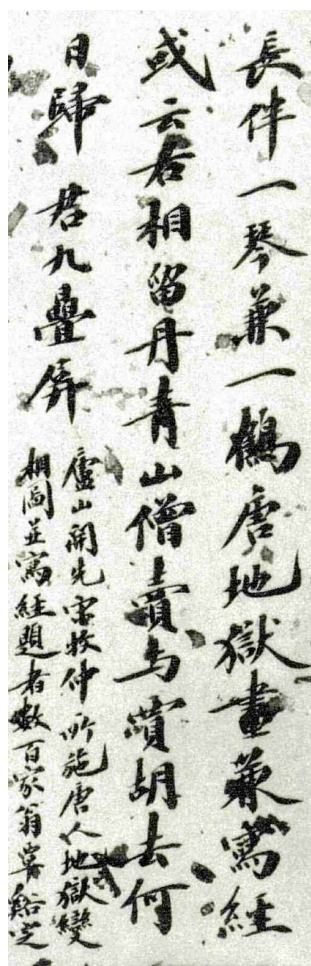 長伴一琴兼一鶴唐地獄畫兼寫經
或云右相留丹青山僧賣与賈胡去何
日歸君九疊屏
廬山開先宋牧仲所施唐人地獄變
相圖並寫經題者數百家翁覃谿